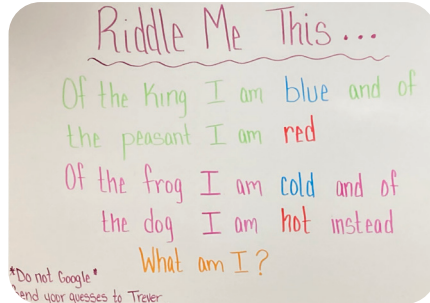 Riddle Me This...
Of the King I am blue and of
the peasant I am red
Of the frog I am cold and of
the dog I am hot instead
What am I?
*Do not Google*
Send your guesses to Trever